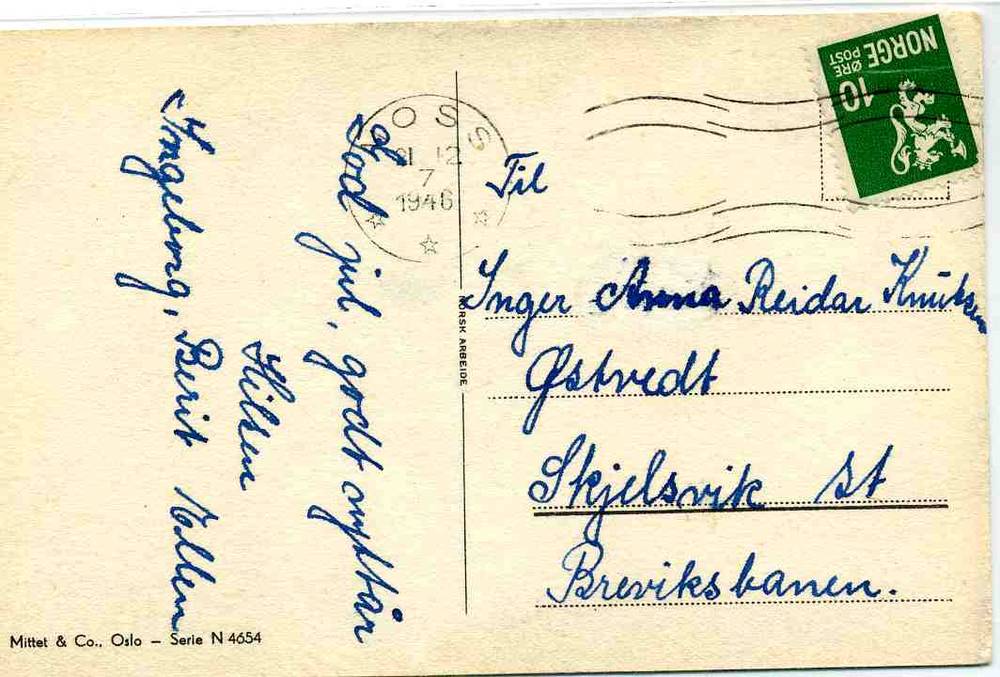 God jul, godt nyttår
Hilsen
Ingeborg, Berit Ellen
MOSS
21 12
7
1946
NORGE
POST
10 ØRE
Til
Inger Anna Reidar Knutsen
Østvedt
Skjelsvik St
Breviksbanen.
NORSK ARBEIDE
Mittet & Co., Oslo — Serie N 4654